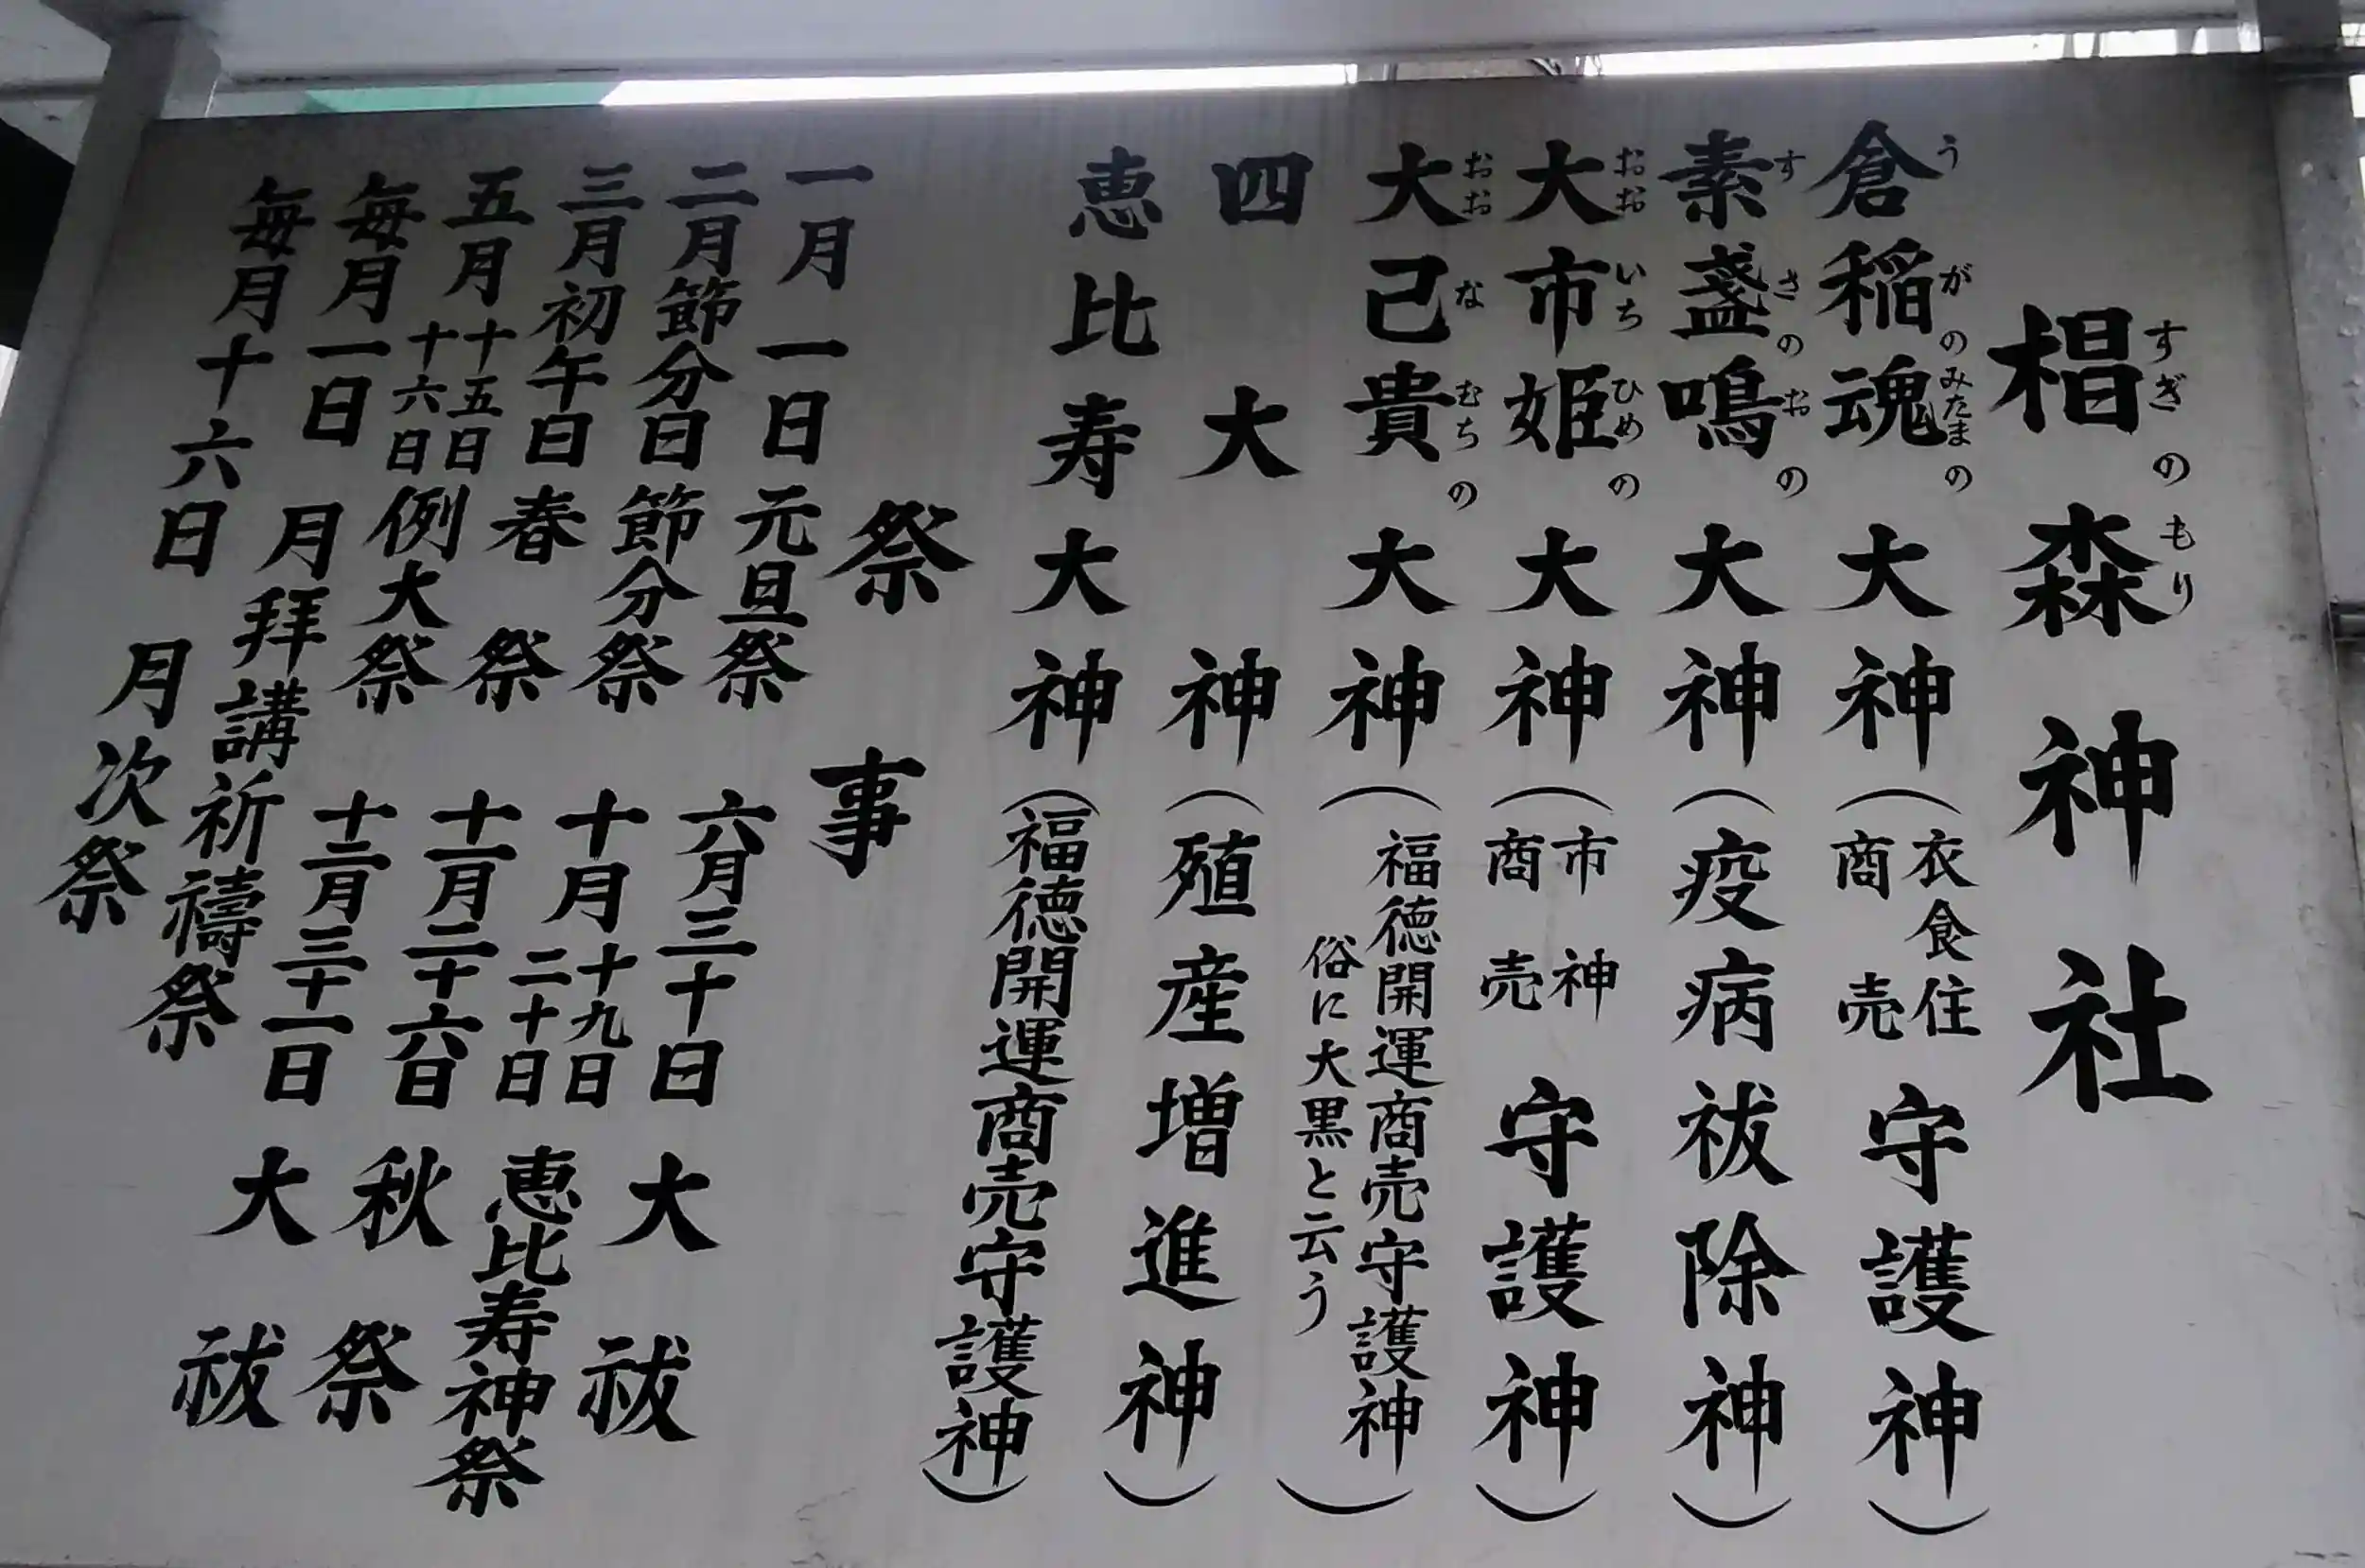 椙森神社
すぎのもり
倉稲魂大神（衣食住商売守護神）
うがのみたまの
素盞嗚大神（疫病祓除神）
すさのおの
大市姫大神（市神商売守護神）
おおいちひめの
大己貴大神（福徳開運商売守護神 俗に大黒と云う）
おおなむちの
四大神（殖産増進神）
恵比寿大神（福徳開運商売守護神）
祭事
一月一日 元旦祭
二月節分日 節分祭
三月初午日 春祭
五月十五日十六日 例大祭
毎月一日 月拝講祈禱祭
毎月十六日 月次祭
六月三十日 大祓
十月十九日二十日 恵比寿神祭
十一月二十六日 秋祭
十二月三十一日 大祓